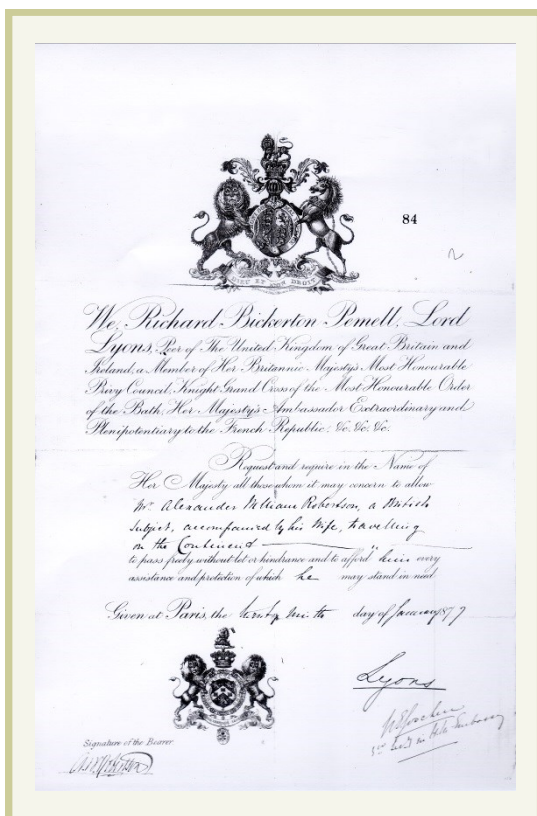 DIEU ET MON DROIT
84
We, Richard Bickerton Pemell, Lord
Lyons, Peer of The United Kingdom of Great Britain and
Ireland, a Member of Her Britannic Majesty's Most Honourable
Privy Council, Knight Grand Cross of the Most Honourable Order
of the Bath, Her Majesty's Ambassador Extraordinary and
Plenipotentiary to the French Republic, &c. &c. &c.
Request and require in the Name of
Her Majesty all those whom it may concern to allow
Mr. Alexander William Robertson, a British
Subject, accompanied by his Wife, travelling
on the Continent
to pass freely without let or hindrance and to afford him every
assistance and protection of which he may stand in need.
Given at Paris, the twenty ninth day of January 1879
Lyons
Signature of the Bearer.